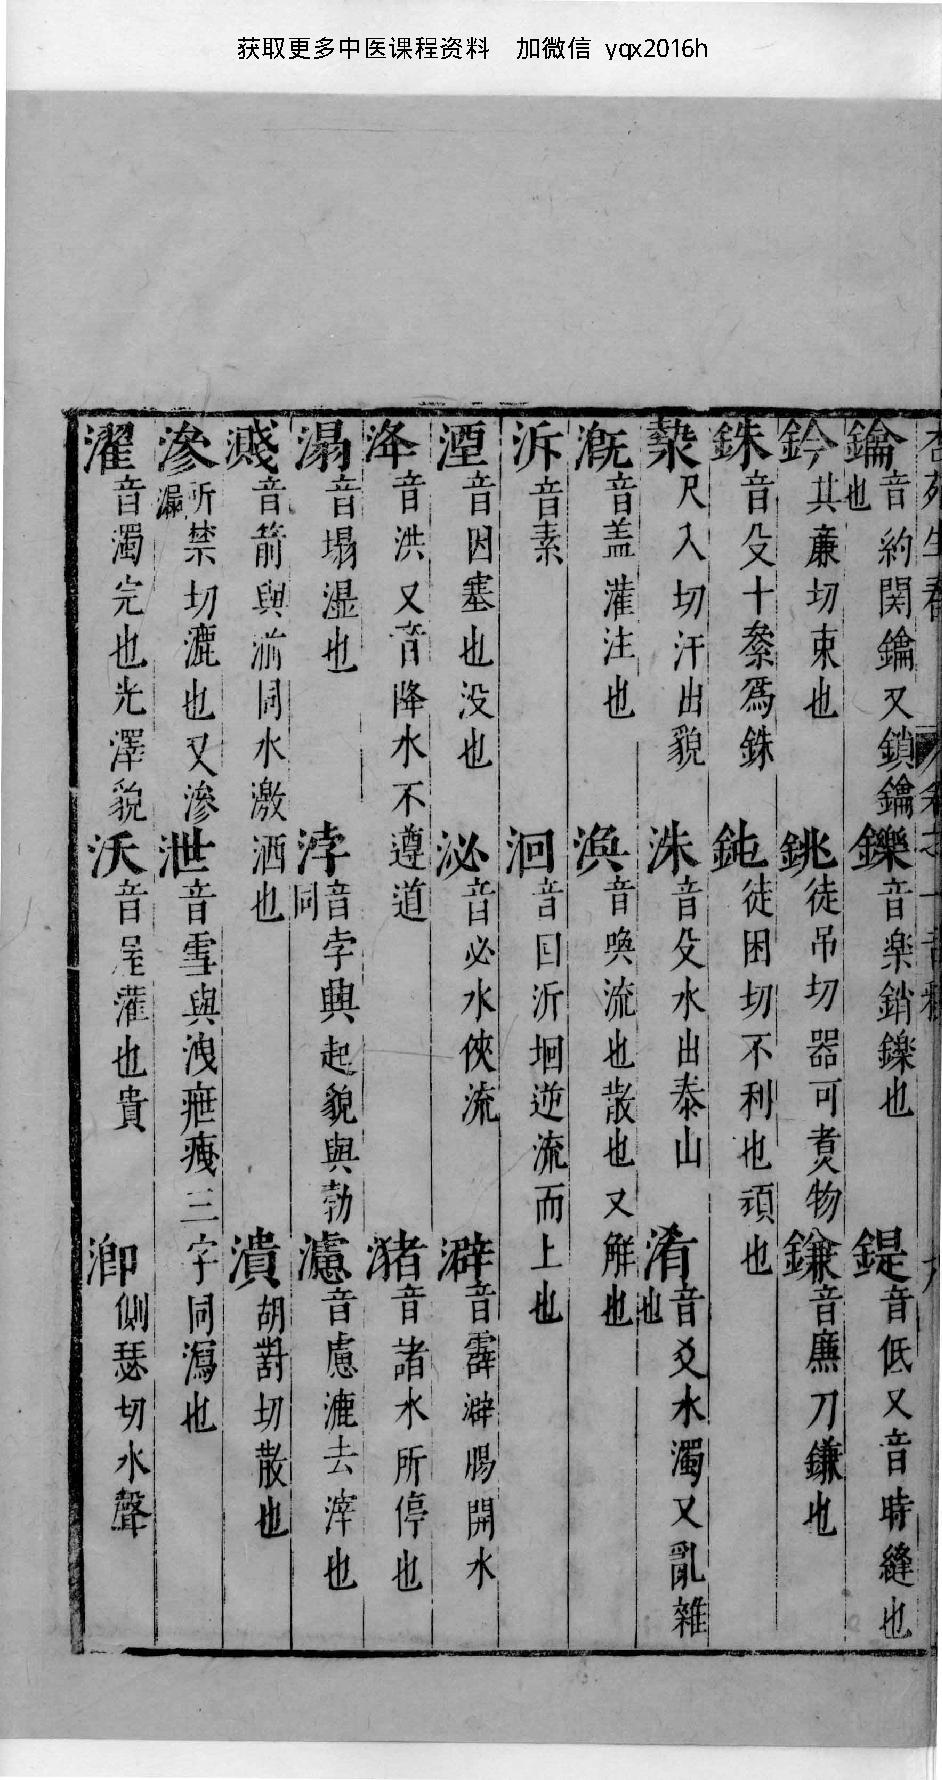 获取更多中医课程资料 加微信 yqx2016h
杏苑生春
鑰音約関鑰又鎖鑰也 鑠音楽銷鑠也 鍉音低又音時縫也
鈐其廉切束也 銚徒吊切器可煑物 鎌音廉刀鎌也
銖音殳十絫爲銖 鈍徒困切不利也頑也
漐尺入切汗出貌 洙音殳水出泰山 淆音爻水濁又亂雜也
漑音盖灌注也 渙音喚流也散也又解也
泝音素 洄音囙泝洄逆流而上也
湮音因塞也没也 泌音必水俠流 澼音霹澼腸開水
洚音洪又音降水不遵道 潴音諸水所停也
溻音塌湿也 浡音孛興起貌與勃同 濾音慮漉去滓也
濺音箭與湔同水激洒也 潰胡對切散也
滲所禁切漉也又滲漏 泄音雪與洩疶㾞三字同瀉也
濯音濁完也光澤貌 沃音屋灌也貴 㳨側瑟切水聲